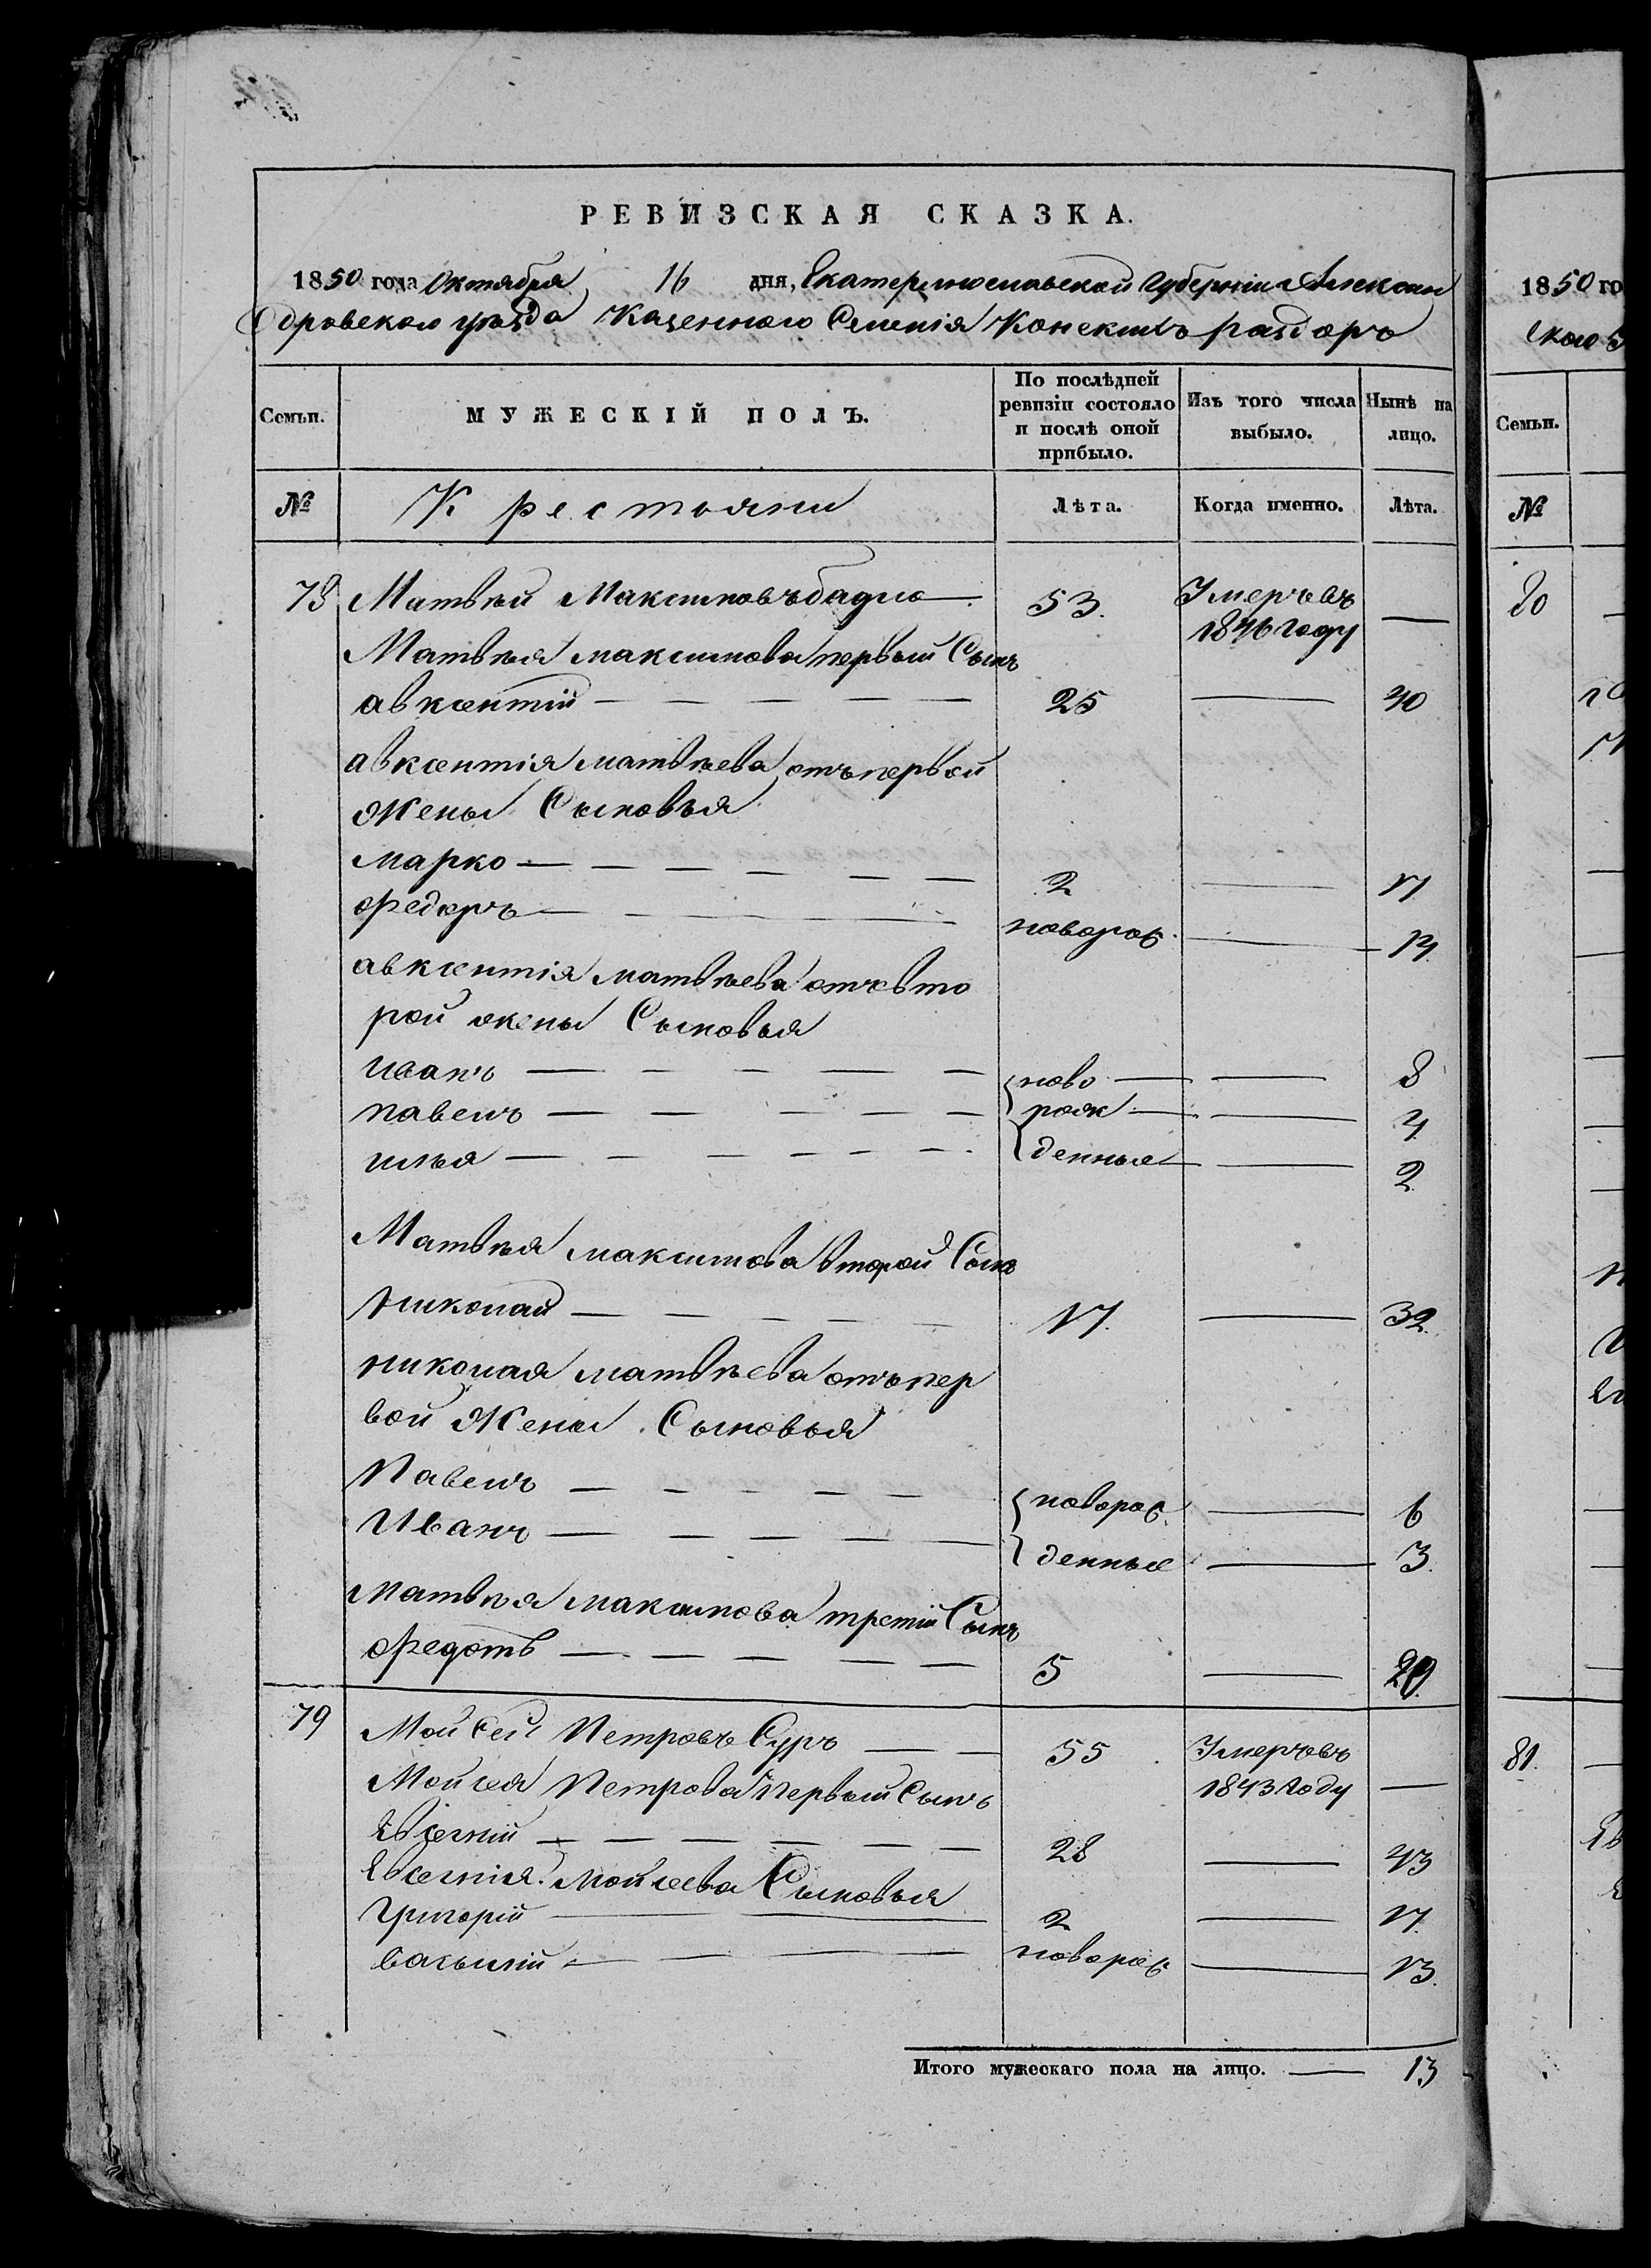 РЕВИЗСКАЯ СКАЗКА.
1850 года Октября 16 дня, Екатеринославской Губерніи Александровского уѣзда Казенного Селенія Конскихъ раздоръ
Семьи. МУЖЕСКІЙ ПОЛЪ. По послѣдней ревизіи состояло и послѣ оной прибыло. Изъ того числа выбыло. Нынѣ на лицо.
№ Крестьяни Лѣта. Когда именно. Лѣта.
78 Матвѣй Максимовъ 53. Умеръ въ 1846 году —
Матвѣя максимова первый Сынъ
авксентій — 25 — 40
авксентія матвѣева отъ первой
Жены Сыновья
марко — 2 — 17
федоръ — новорож. — 14
авксентія матвѣева отъ вто
рой жены Сыновья
иванъ — ново — 8
павелъ — рож — 4
илья — денные — 2
Матвѣя максимова второй Сынъ
николай — 17. — 32.
николая матвѣева отъ пер
вой Жены Сыновья
Павелъ — новорож — 6
Иванъ — денные — 3.
матвѣя максимова третій Сынъ
федотъ — 5 — 20
79 Мойсей Петровъ Суръ — 55 Умеръ въ 1843 году —
Мойсея Петрова первый сынъ
Евсегній — 28 — 43
Евсегнія мойсеева Сыновья
григорій — 2 — 17.
василій — новорож — 13.
Итого мужескаго пола на лицо. — 13
1850 го
Семьи.
№
80
81.